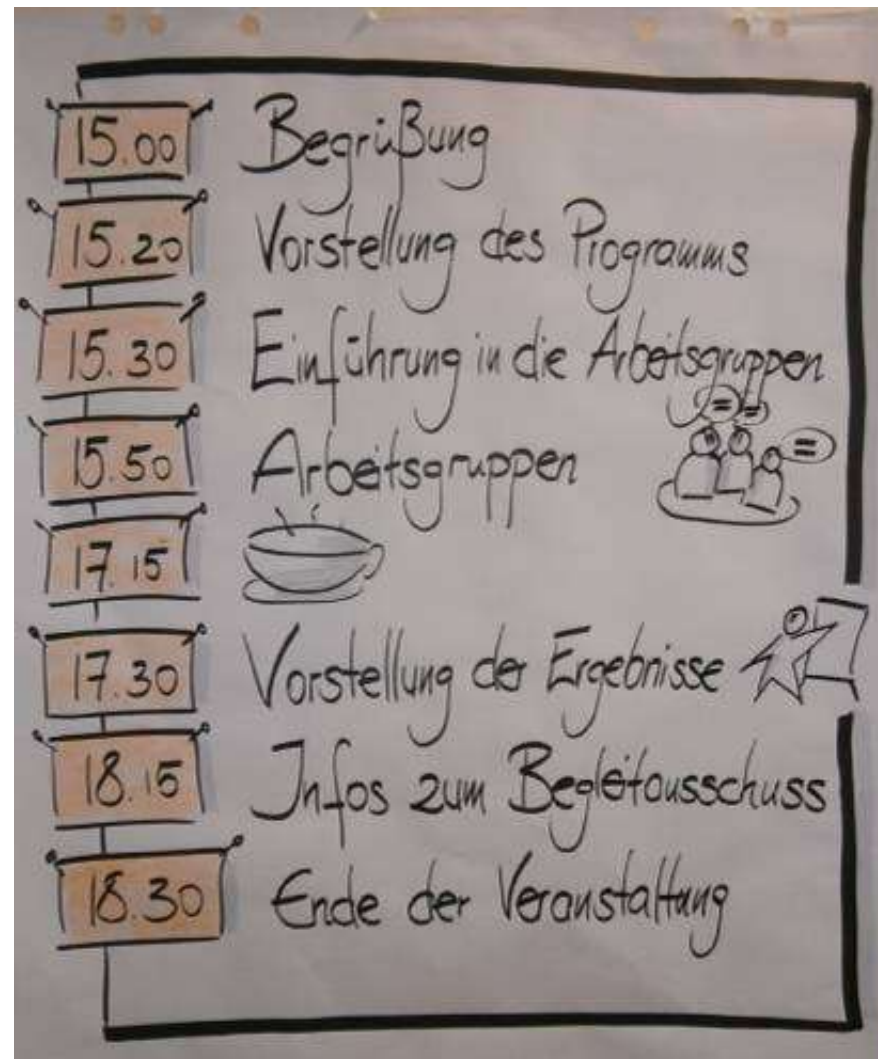 15.00 Begrüßung
15.20 Vorstellung des Programms
15.30 Einführung in die Arbeitsgruppen
15.50 Arbeitsgruppen
17.15
17.30 Vorstellung der Ergebnisse
18.15 Infos zum Begleitausschuss
18.30 Ende der Veranstaltung